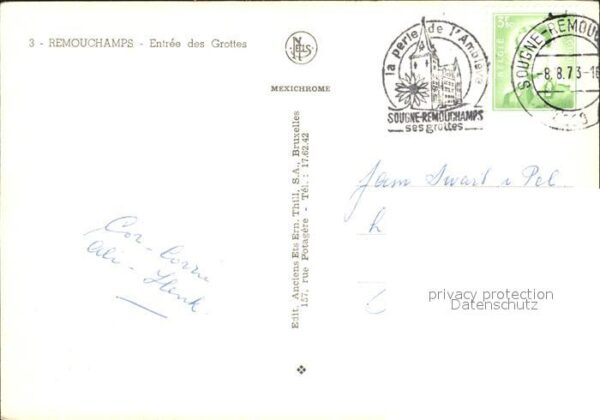 3 - REMOUCHAMPS - Entrée des Grottes
NELS
MEXICHROME
la perle de l'Amblève
SOUGNE-REMOUCHAMPS
ses grottes
3F
BELGIË
SOUGNE-REMOUCH
-8.8.73-18
Edit. Anciens Ets Ern. Thill, S.A., Bruxelles
157, rue Potagère - Tél. : 17.62.42
Cor - Corrie
Ali - Henk
privacy protection
Datenschutz